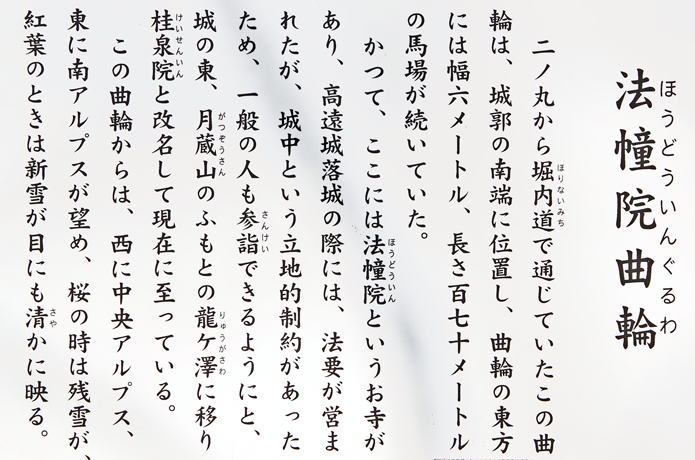 法幢院曲輪
ほうどういんぐるわ
二ノ丸から堀内道で通じていたこの曲
ほりないみち
輪は、城郭の南端に位置し、曲輪の東方
には幅六メートル、長さ百七十メートル
の馬場が続いていた。
かつて、ここには法幢院というお寺が
ほうどういん
あり、高遠城落城の際には、法要が営ま
れたが、城中という立地的制約があった
ため、一般の人も参詣できるようにと、
さんけい
城の東、月蔵山のふもとの龍ヶ澤に移り
がつぞうさん
りゅうがさわ
桂泉院と改名して現在に至っている。
けいせんいん
この曲輪からは、西に中央アルプス、
東に南アルプスが望め、桜の時は残雪が、
紅葉のときは新雪が目にも清かに映る。
さや